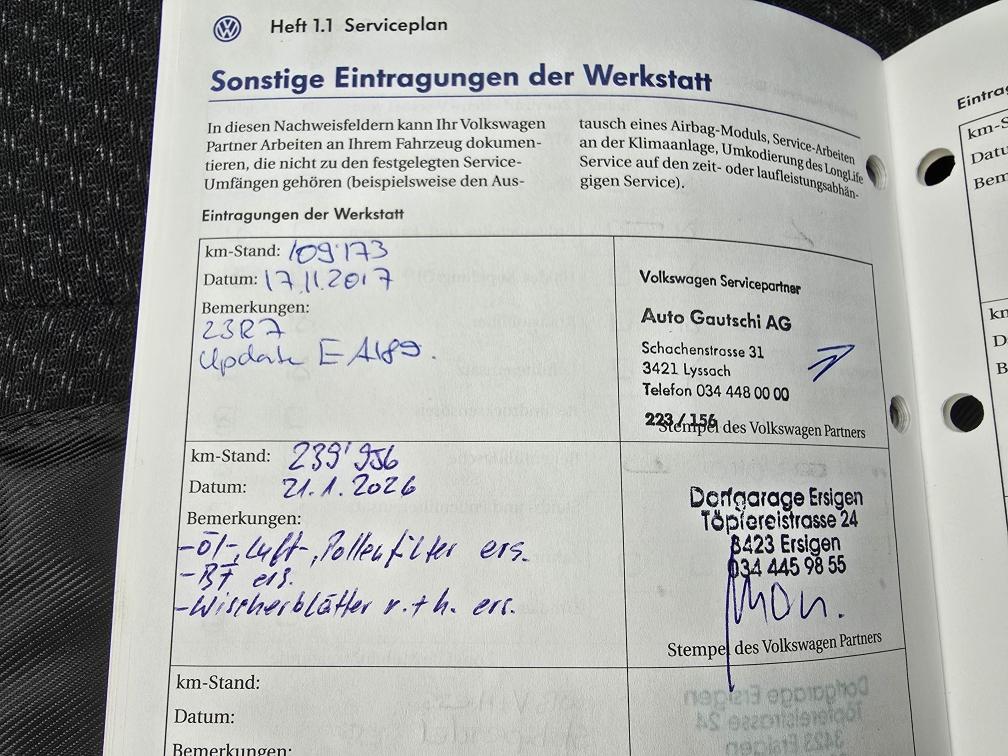 Heft 1.1 Serviceplan
Sonstige Eintragungen der Werkstatt
In diesen Nachweisfeldern kann Ihr Volkswagen
Partner Arbeiten an Ihrem Fahrzeug dokumen-
tieren, die nicht zu den festgelegten Service-
Umfängen gehören (beispielsweise den Aus-
tausch eines Airbag-Moduls, Service-Arbeiten
an der Klimaanlage, Umkodierung des LongLife
Service auf den zeit- oder laufleistungsabhän-
gigen Service).
Eintragungen der Werkstatt
km-Stand: 109'173
Datum: 17.11.2017
Bemerkungen:
23R7
Update EA189.
Volkswagen Servicepartner
Auto Gautschi AG
Schachenstrasse 31
3421 Lyssach
Telefon 034 448 00 00
223 / 156
Stempel des Volkswagen Partners
km-Stand: 239'956
Datum: 21.1.2026
Bemerkungen:
-Öl-, Luft-, Pollenfilter ers.
-BF ers.
-Wischerblätter v.+h. ers.
Dorfgarage Ersigen
Töpfereistrasse 24
3423 Ersigen
034 445 98 55
Stempel des Volkswagen Partners
km-Stand:
Datum:
Bemerkungen: